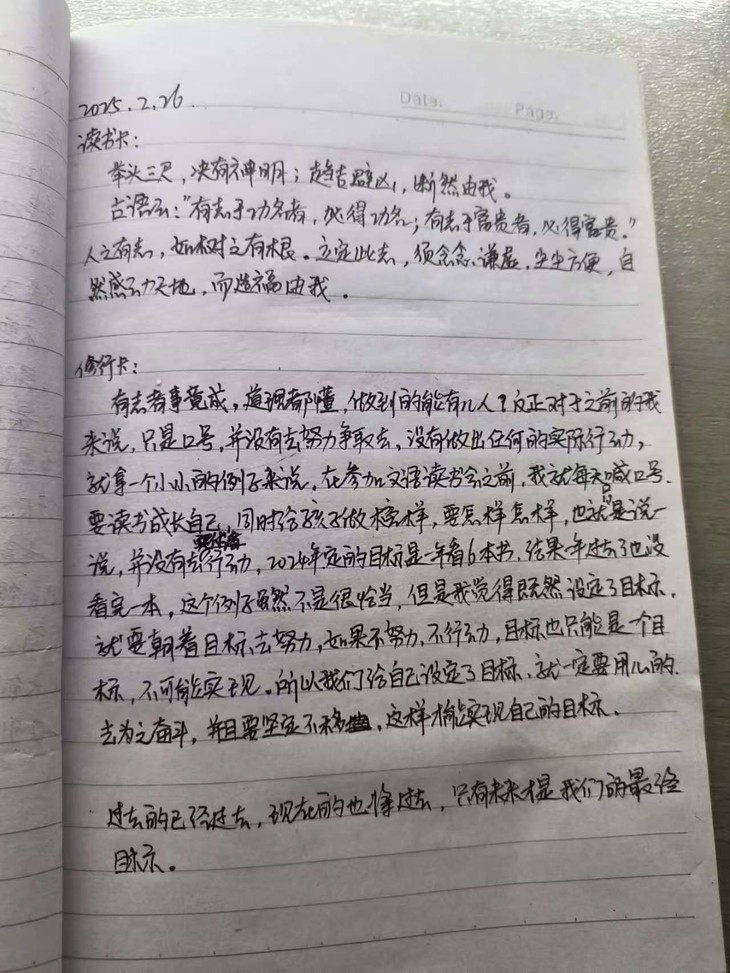 Date.
Page.
2025.2.26
读书卡:
举头三尺,决有神明;趋吉避凶,断然由我。
古语云:"有志于功名者,必得功名;有志于富贵者,必得富贵。"
人之有志,如树之有根。立定此志,须念念谦虚,尘尘方便,自
然感动天地,而造福由我。
修行卡:
有志者事竟成,道理都懂,做到的能有几人?反正对于之前的我
来说,只是口号,并没有去努力争取去,没有做出任何的实际行动,
就拿一个小小的例子来说,在参加交语读书会之前,我就每天喊口号.
要读书成长自己,同时给孩子做榜样,要怎样怎样,也就是说一
说,并没有去行动,2024年定的目标是一年看6本书.结果一年过去了也没
看完一本,这个例子虽然不是很恰当,但是我觉得既然设定了目标.
就要朝着目标去努力,如果不努力.不行动,目标也只能是一个目
标,不可能实现。所以我们给自己设定了目标、就一定要用心的.
去为之奋斗,并且要坚定不移,这样才能实现自己的目标.
过去的已经过去,现在的也将过去,只有未来才是我们的最终
目标。